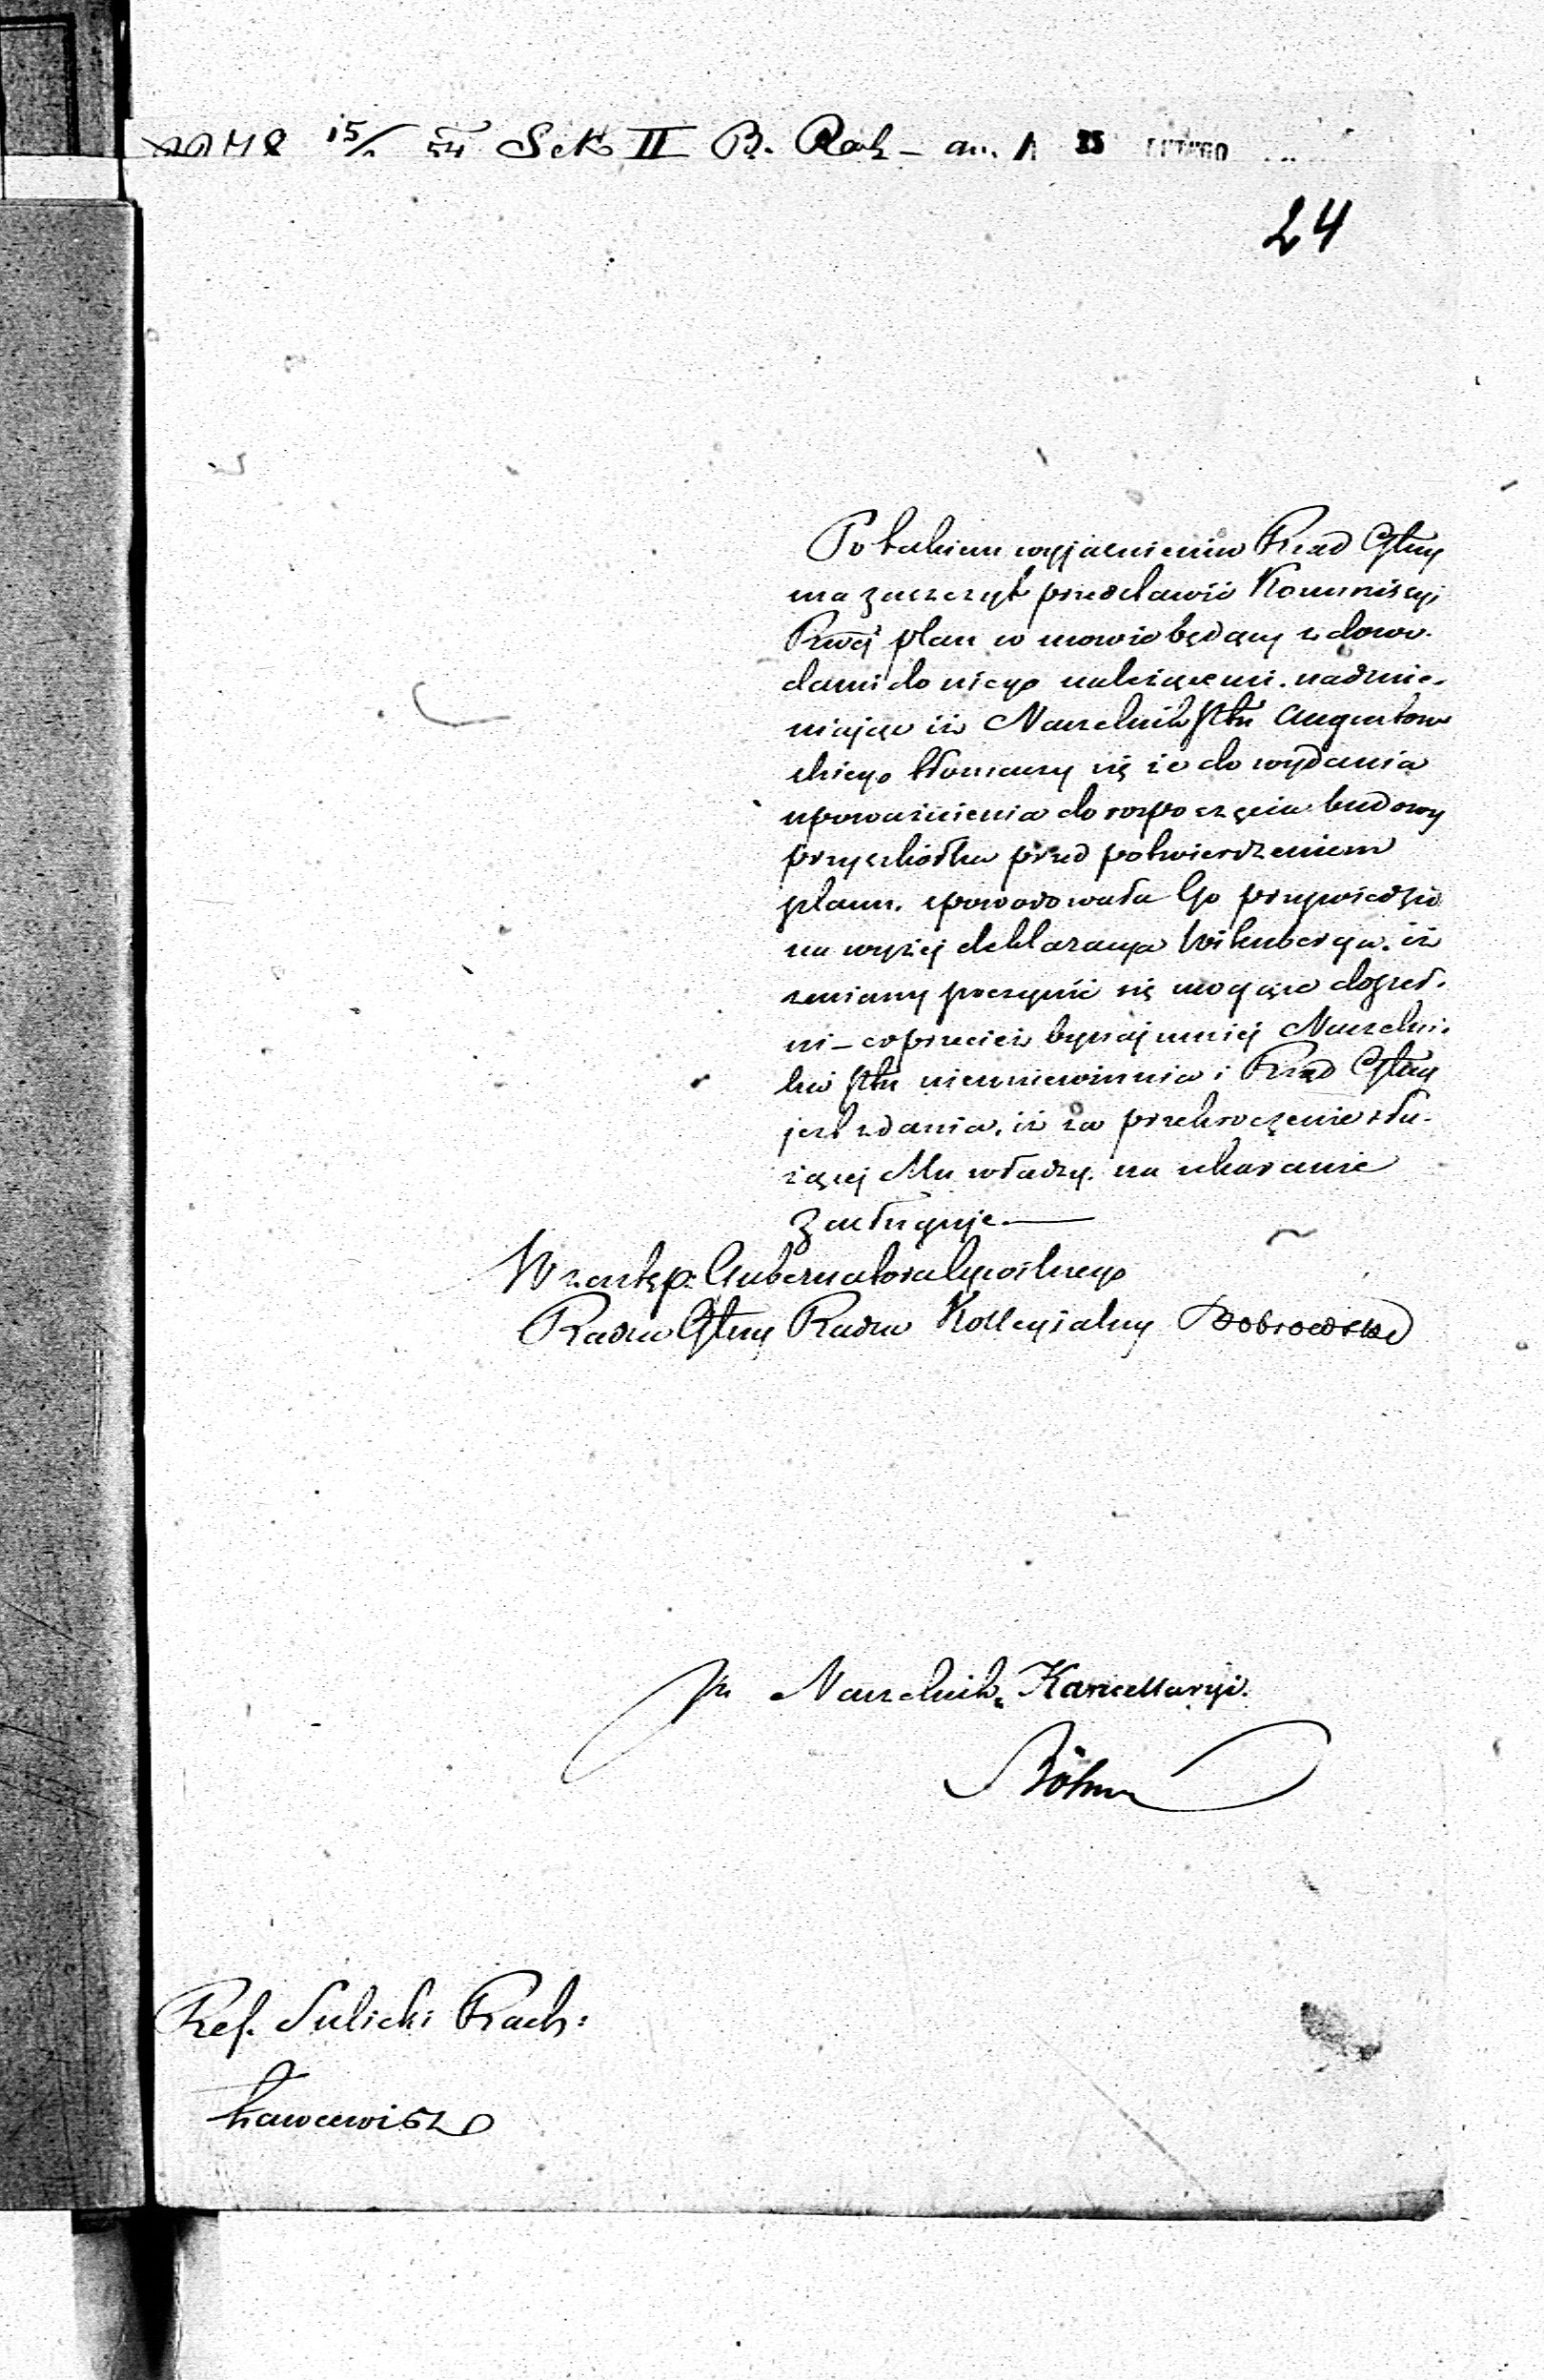 15/ Sek II B. Rach - 25 LUTEGO
24
Po takiem wyjaśnieniu Rząd Gtny
ma zaszczyt przedstawić Kommissyi
Rząej plan w mowie będący z dowo-
dami do niego należącemi. nadmie-
niając iż Naczelnik Ptu Augustow
skiego tłomaczy się że do wydania
upoważnienia do rozpoczęcia budowy
przyszkółka przed potwierdzeniem
planu. spowodowała Go przywiedzio
na wyżej deklaracya Witenberga. iż
zmiany poczynić się mogące dopeł-
ni - co przecież bynajmniej Naczelni-
ka Ptu nieuniewinnia i Rząd Gtny
jest zdania, iż za przekroczenie słu-
żącej Mu władzy. na ukaranie
zasługuje.—
W zastęp: Gubernatora Cywilnego
Radca Gtny Radca Kollegialny Dobrowolski
Naczelnik Kancellaryi.
Böhm
Ref. Sulicki Rach: